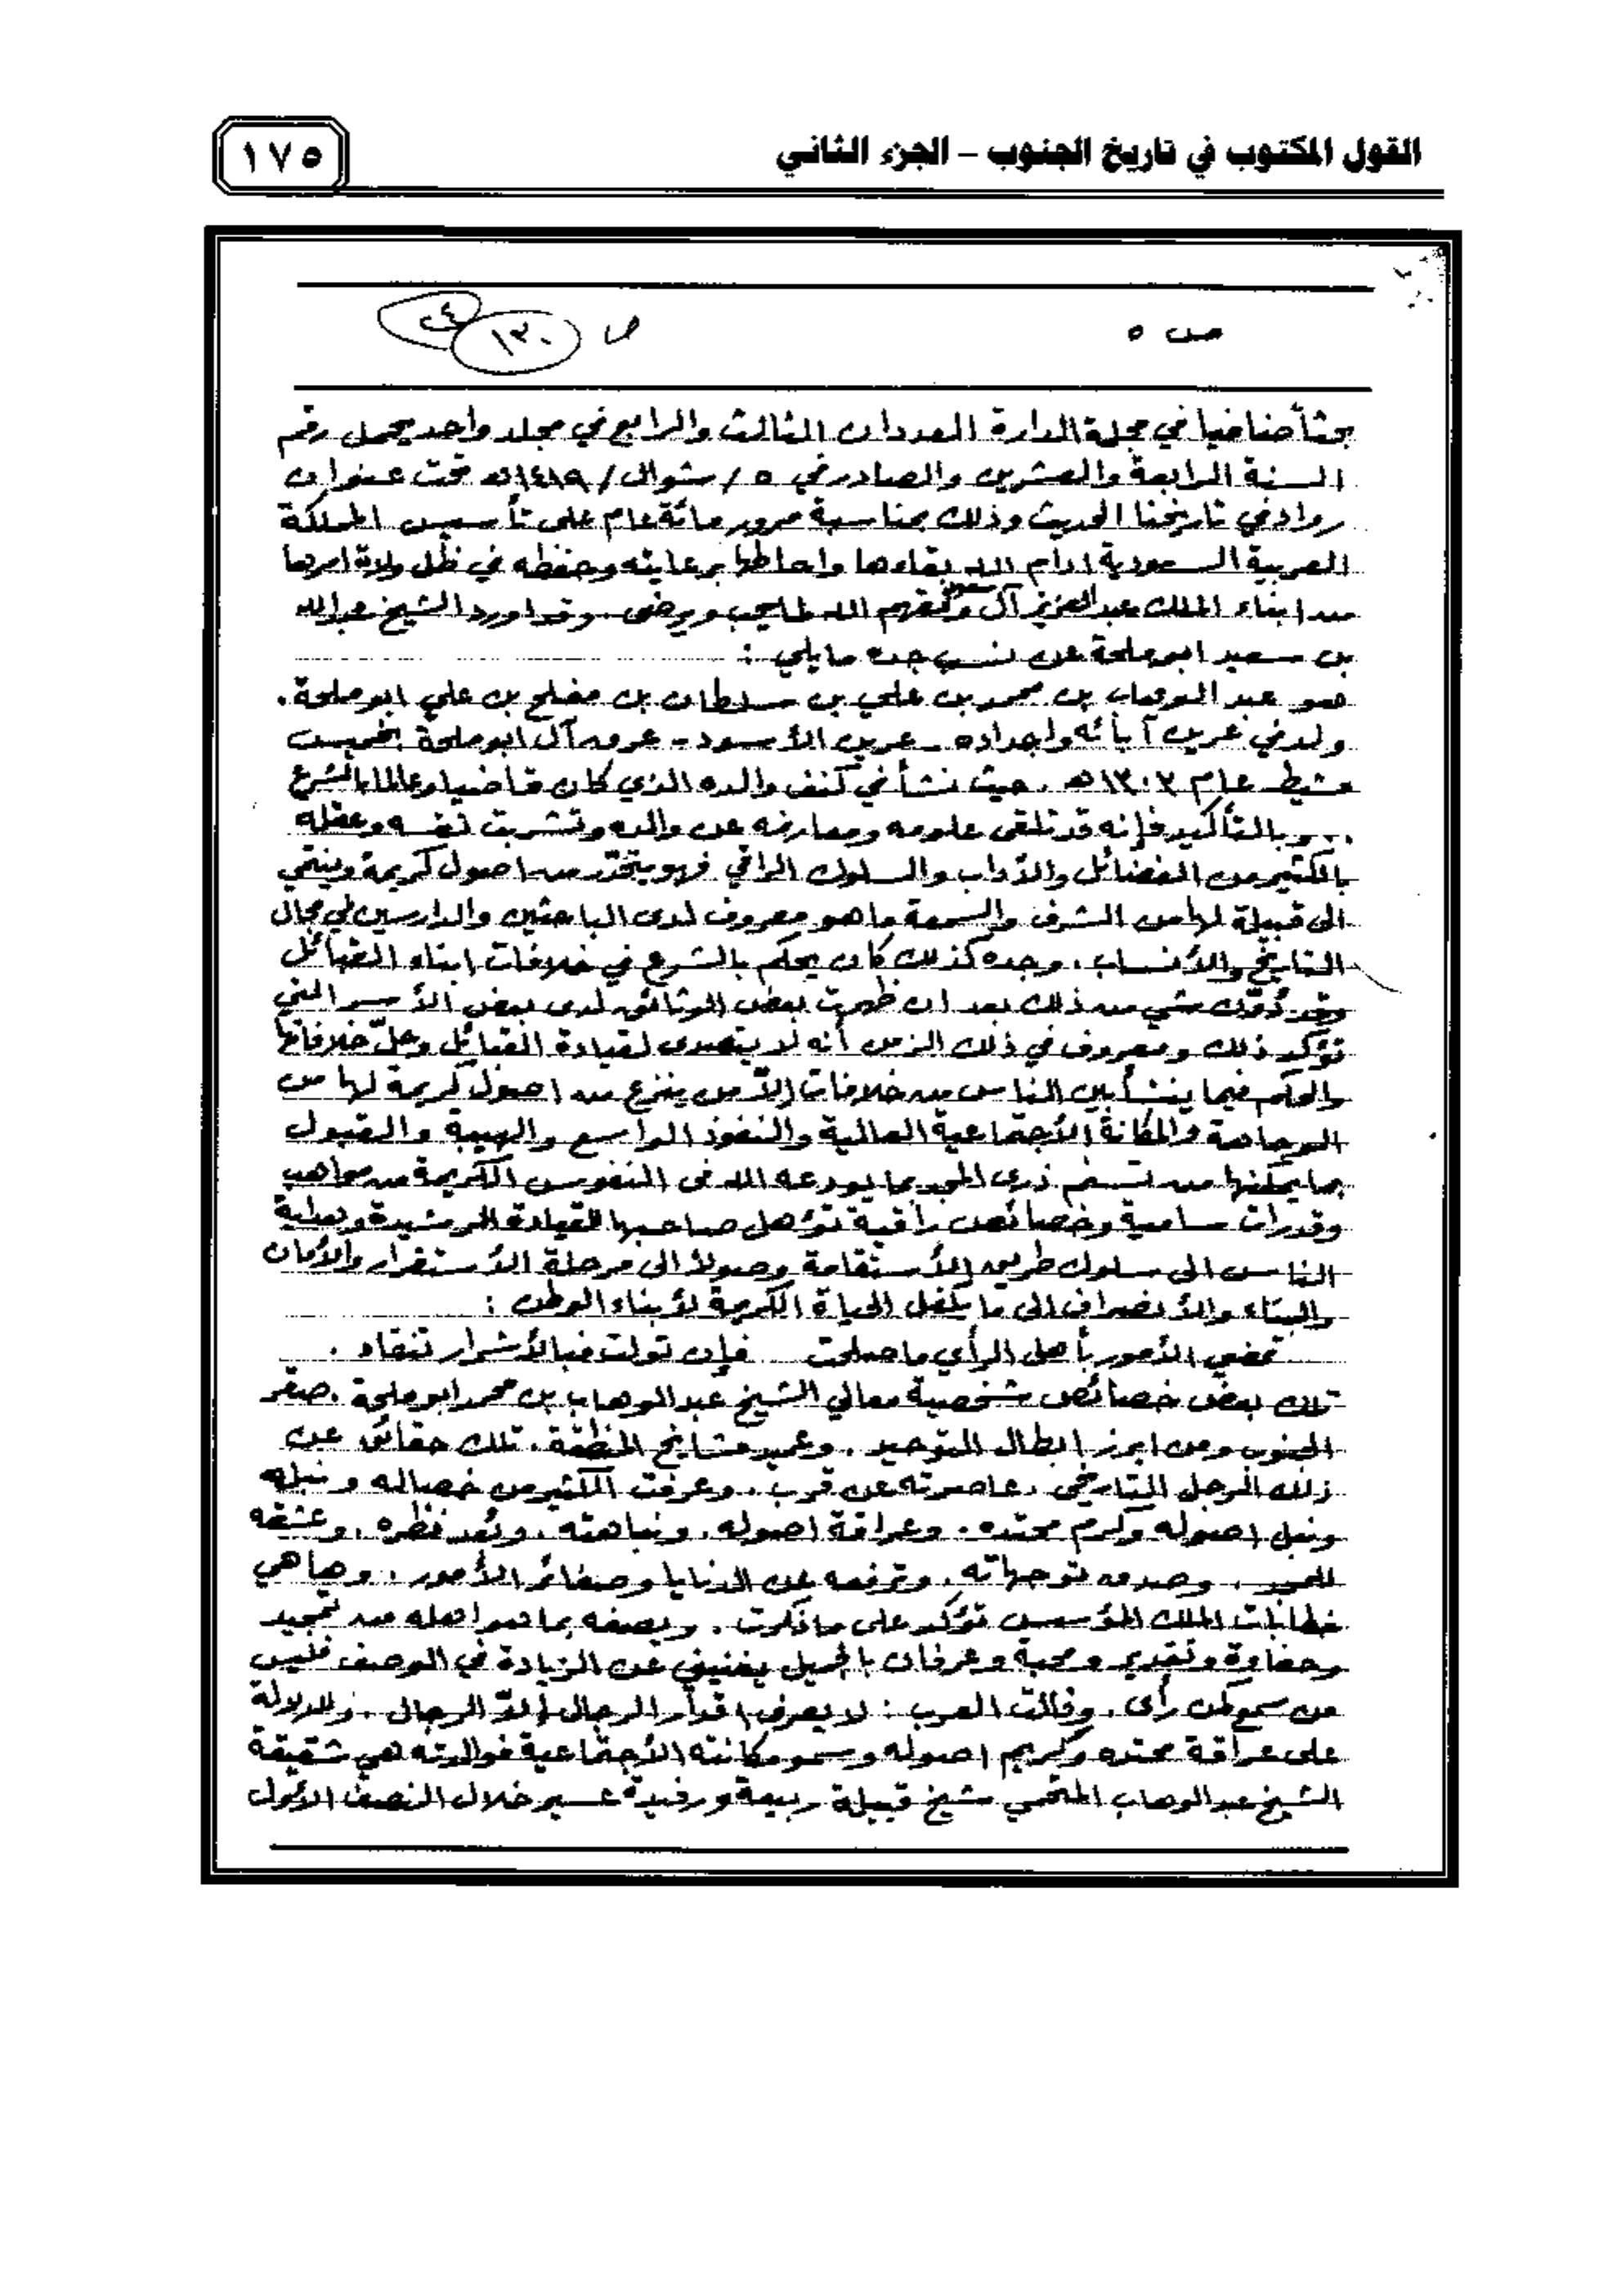 القول المكتوب في تاريخ الجنوب – الجزء الثاني
١٧٥
ص ٥
ص ١٣٠
٢٤
بحثاً ضافيا في مجلة الدارة العددان الثالث والرابع في مجلد واحد يحمل رقم
السنة الرابعة والعشرين والصادر في ٥ / شوال / ١٤١٩هـ تحت عنوان
رواد في تاريخنا الحديث وذلك بمناسبة مرور مائة عام على تأسيس المملكة
العربية السعودية ادام الله بقاءها واحاطها برعايته وحفظه في ظل ولاة امرها
من ابناء الملك عبدالعزيز آل سعود وفقهم الله لما يحب ويرضى وقد اورد الشيخ عبدالله
بن سعيد ابو ملحة عن نسب جده مايلي :
هو عبد الوهاب بن محمد بن علي بن سلطان بن مفلح بن علي ابو ملحة .
ولد في عرين آبائه واجداده – عرين الأسود – عرق آل ابو ملحة بخميس
مشيط عام ١٣٠٢هـ . حيث نشأ في كنف والده الذي كان قاضيا وعالما بالشرع
.. وبالتأكيد فإنه قد تلقى علومه ومعارفه عن والده وتشربت نفسه وعقله
بالكثير من الفضائل والآداب والسلوك الراقي فهو يتحدر من اصول كريمة وينتمي
الى قبيلة لها من الشرف والسمعة ما هو معروف لدى الباحثين والدارسين في مجال
التاريخ والأنساب . وجده كذلك كان يحكم بالشرع في خلافات ابناء القبائل
وقد دُوّن شي من ذلك بعد ان ظهرت بعض الوثائق لدى بعض الأسر التي
تؤكد ذلك ومعروف في ذلك الزمن أنه لا يتصدى لقيادة القبائل وحلّ خلافاتها
والحكم فيما ينشأ بين الناس من خلافات إلا من ينزع من اصول كريمة لها من
الوجاهة والمكانة الأجتماعية العالية والنفوذ الواسع والهيبة والقبول
بما يمكنها من تسنم ذرى المجد بما يودعه الله في النفوس الكريمة من مواهب
وقدرات سامية وخصائص راقية تؤهل صاحبها للقيادة الرشيدة وهداية
الناس الى سلوك طريق الأستقامة وصولاً الى مرحلة الأستقرار والأمان
والبناء والأنصراف الى ما يكفل الحياة الكريمة لأبناء الوطن :
تمضي الأمور بأهل الرأي ما صلحت فإن تولت فبالأشرار تنقاد .
تلك بعض خصائص شخصية معالي الشيخ عبدالوهاب بن محمد ابو ملحة . صقر
الجنوب ومن ابرز ابطال التوحيد . وعميد مشايخ المنطقة . تلك حقائق عن
ذلك الرجل التاريخي . عاصرته عن قرب . وعرفت الكثير من خصاله ونبله
ونبل اصوله وكرم محتده . وعراقة اصوله . ونباهته . وبُعد نظره . وعشقه
للخير . وصدق توجهاته . وترفعه عن الدنايا وصغائر الأمور . وها هي
خطابات الملك المؤسس تؤكد على ما ذكرت . ويصفه بما هو اهله من تمجيد
وحفاوة وتقدير ومحبة وعرفان بالجميل يغنيني عن الزيادة في الوصف فليس
من سمع كمن رأى . وقالت العرب : لا يعرف اقدار الرجال إلاّ الرجال . وللدلالة
على عراقة محتده وكريم اصوله وسمو مكانته الأجتماعية فوالدته هي شقيقة
الشيخ عبدالوهاب المتحمي شيخ قبيلة ربيعة ورفيدة عسير خلال النصف الأول